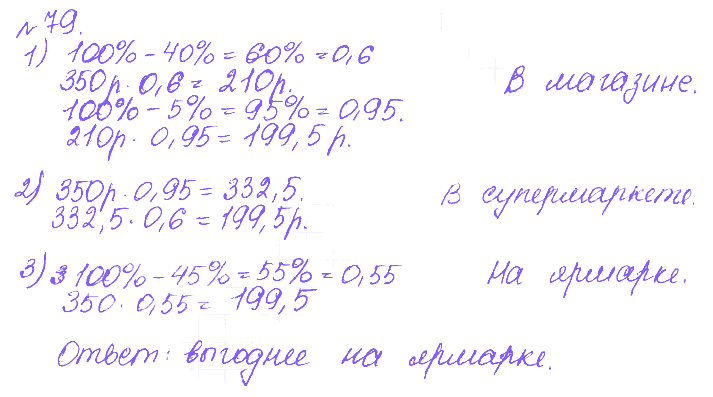 №79.
1) 100% - 40% = 60% = 0,6
350р. · 0,6 = 210р. В магазине.
100% - 5% = 95% = 0,95.
210р. · 0,95 = 199,5р.
2) 350р. · 0,95 = 332,5. В супермаркете.
332,5 · 0,6 = 199,5р.
3) 3 100% - 45% = 55% = 0,55 На ярмарке.
350 · 0,55 = 199,5
Ответ: выгоднее на ярмарке.